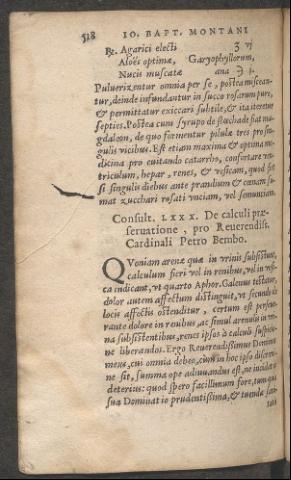 518 IO. BAPT. MONTANI
℞. Agarici electi ʒ vj
Aloës optimæ, Garyophyllorum,
Nucis muscatæ ana ʒ
Puluerizentur omnia per se, postea misceantur, deinde infundantur in succo rosarum pure,
& permittatur exiccari subtile, & ita iteretur
septies. Postea cum syrupo de stœchade fiat magdaleon, de quo formentur pilulæ tres pro singulis vicibus. Est etiam maxima & optima medicina pro euitando catarrho, confortare ventriculum, hepar, renes, & vesicam, quod
si singulis diebus ante prandium & cœnam sumat zucchari rosati vnciam, vel semunciam.
Consult. LXXX. De calculi præseruatione, pro Reuerendiss.
Cardinali Petro Bembo.
QVoniam arenæ quæ in vrinis subsistunt,
calculum fieri vel in renibus, vel in vesica indicant, vt quarto Aphor. Galenus testatur,
dolor autem affectum distinguit, vt secundo de
locis affectis ostenditur, certum est perseuerante dolore in renibus, ac simul arenulis in vrina subsistentibus, renes ipsos à calculi suspicione liberandos. Ergo Reuerendissimus Dominus
meus, cui omnia debeo, cum in hoc ipso discrimine sit, summa ope adiuuandus est, ne incidat in
deterius: quod spero facillimum fore, tum quia
sua Dominatio prudentissima, & tuendæ